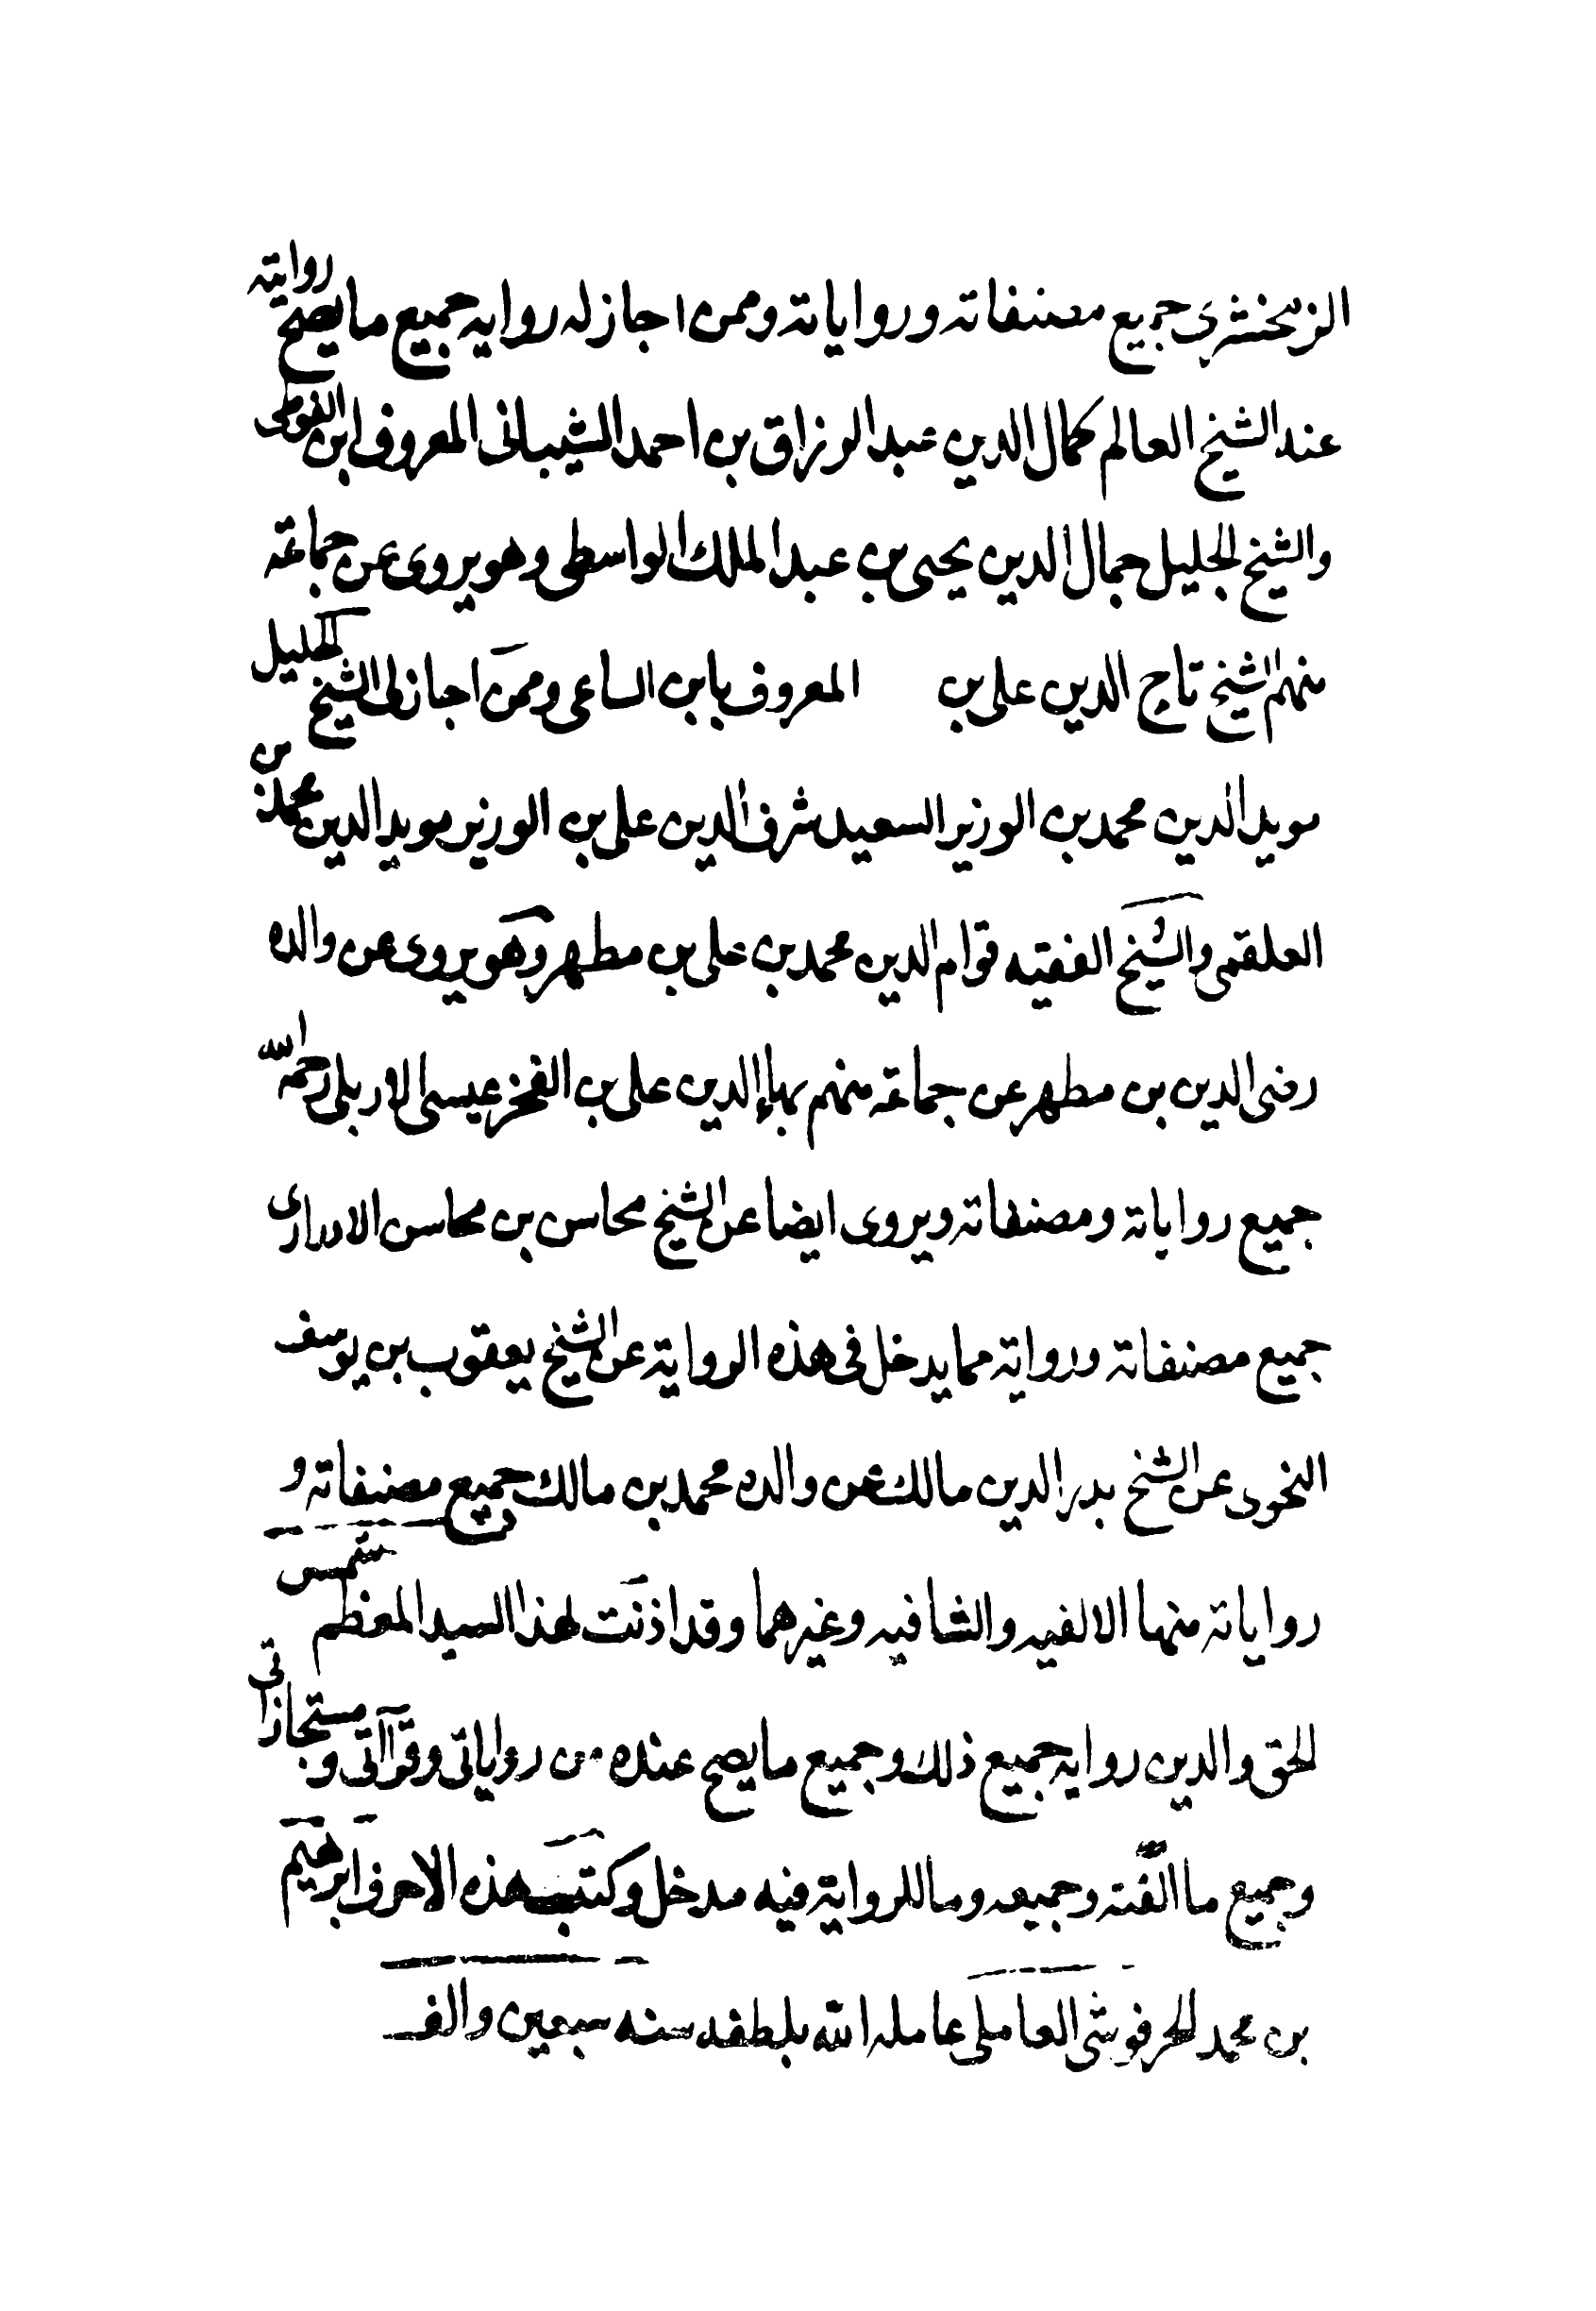 الزمخشري جميع مصنفاته ورواياته وممن اجاز له روايه جميع ما يصح روايته
عند الشيخ العالم كمال الدين عبد الرزاق بن احمد الشيبانى المعروف ابن الفوطى
والشيخ الجليل جمال الدين يحيى بن عبد الملك الواسطى وهو يروى عن جماعة
منهم الشيخ تاج الدين على بن المعروف بابن الساعى وممن اجاز لى الشيخ الجليل
مويد الدين محمد بن الوزير السعيد شرف الدين على بن الوزير مويد الدين محمد بن
العلقمى والشيخ الفقيه قوام الدين محمد بن على بن مطهر وهو يروى عن والده
رضى الدين بن مطهر عن جماعة منهم بهاء الدين على بن الفخر عيسى الاربلى رحمه الله
جميع رواياته ومصنفاته ويروى ايضا عن الشيخ محاسن بن محاسن
جميع مصنفاته ورواية مما يدخل فى هذه الرواية عن الشيخ يعقوب بن يوسف
النحوى عن الشيخ بدر الدين مالك عن والده محمد بن مالك جميع مصنفاته و
رواياته منها الالفيه والشافيه وغيرهما وقد اذنت لهذا السيد المعظم شمس
الحق والدين روايه جميع ذلك وجميع ما يصح عنده من رواياتى وقرآاتى ومستجازاتى
وجميع ما الفته وجميعه وما للرواية فيه مدخل وكتب هذه الاحرف ابرهيم
بن محمد الحرفوشى العاملى عامله الله بلطفه سنه سبعين والف